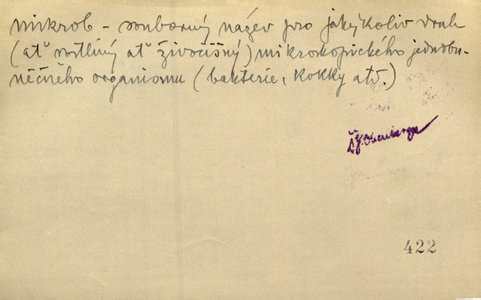 mikrob - souborný název pro jakýkoliv druh
(ať rostliný ať živočišný) mikroskopického jednobu-
něčného organismu (bakterie, kokky atd.)
422